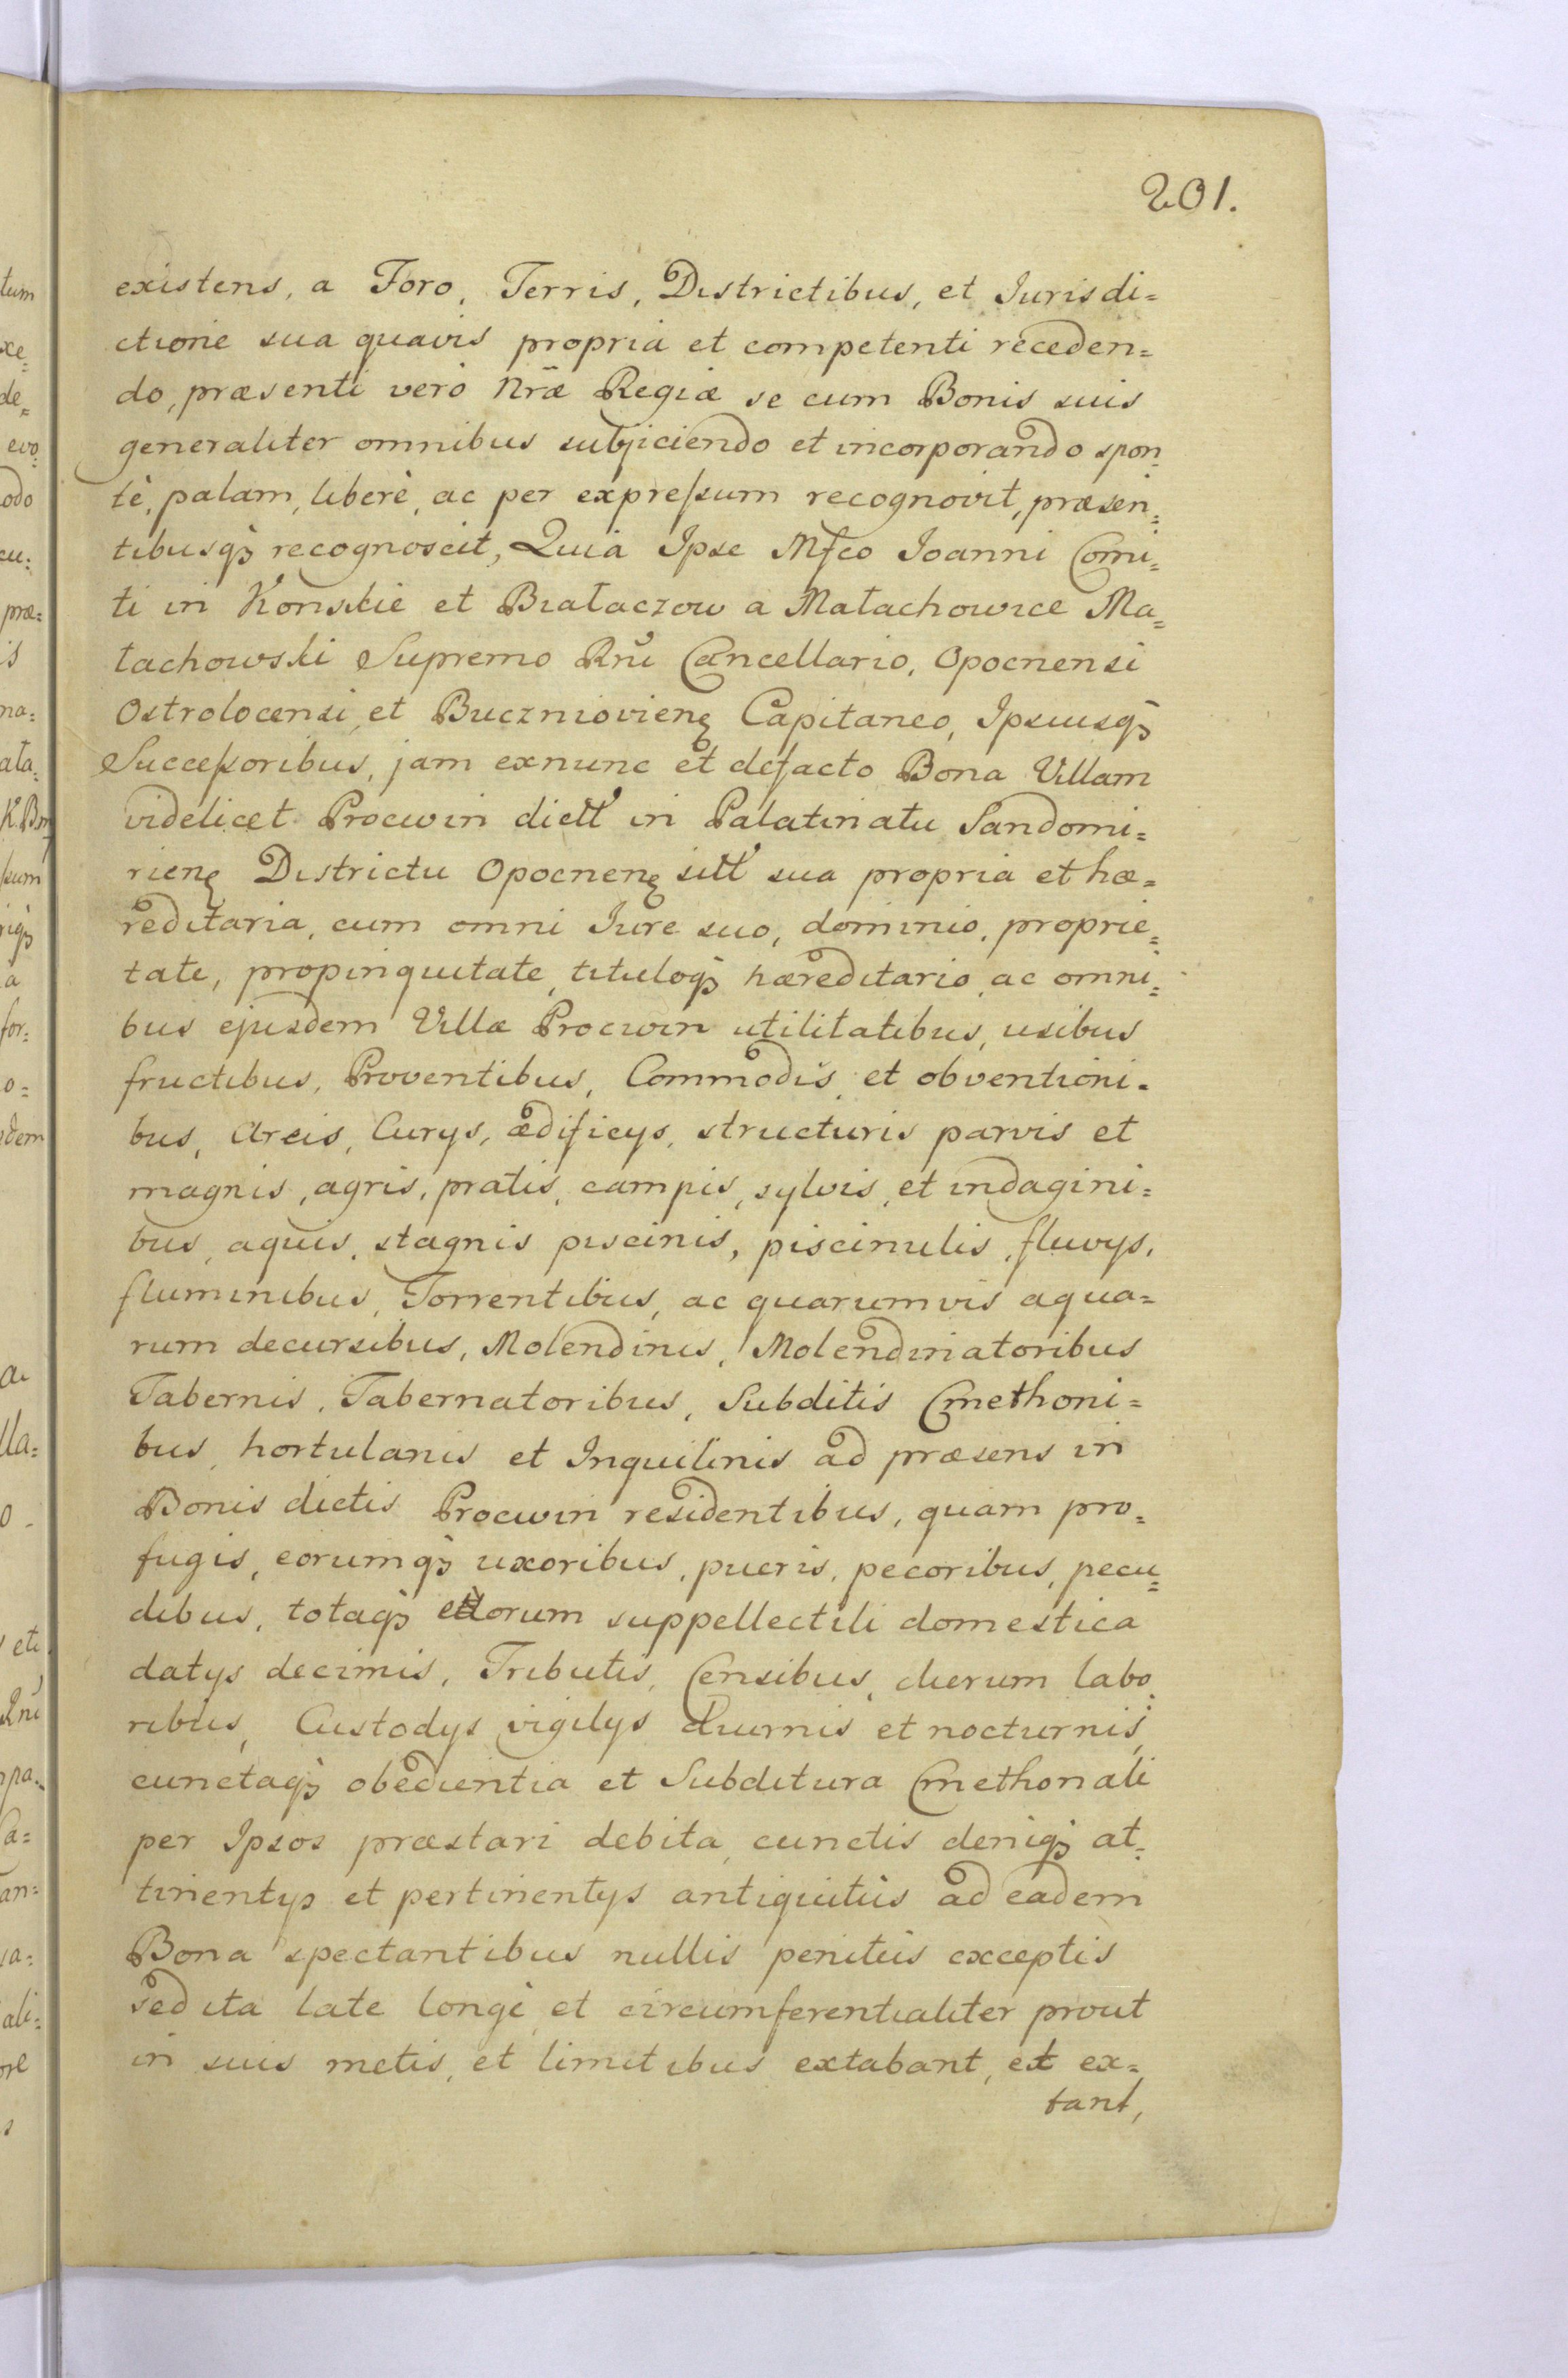 201.
existens, a Foro, Terris, Districtibus, et Iurisdi=
ctione sua quavis propria et competenti receden=
do, præsenti verò Nræ Regiæ se cum Bonis suis
generaliter omnibus subjiciendo et incorporando spon=
tè, palam, liberè, ac per expressum recognovit, præsen=
tibusq₃ recognoscit, Quia Ipse Mfco Ioanni Comi=
ti in Konskie et Białaczow a Małachowice Ma=
łachowski Supremo Rni Cancellario, Opocnensi
Ostrolocensi, et Buczniovien Capitaneo, Ipsiusq₃
Successoribus, jam exnunc et defacto Bona Villam
videlicet Procwin dictt in Palatinatu Sandomi=
rien Districtu Opocnen sitt sua propria et hæ=
reditaria, cum omni Iure suo, dominio, proprie=
tate, propinquitate, tituloq₃ hæreditario, ac omni=
bus ejusdem Villæ Procwin utilitatibus, usibus
fructibus, Proventibus, Commodis, et obventioni=
bus, Areis, Curys, ædificys, structuris parvis et
magnis, agris, pratis, campis, sylvis, et indagini=
bus, aquis, stagnis piscinis, piscinulis, fluvys,
fluminibus, Torrentibus, ac quarumvis aqua=
rum decursibus, Molendinis, Molendinatoribus
Tabernis, Tabernatoribus, Subditis Cmethoni=
bus, hortulanis et Inquilinis ad præsens in
Bonis dictis Procwin residentibus, quam pro=
fugis, eorumq₃ uxoribus, pueris, pecoribus, pecu=
dibus, totaq₃ eorum suppellectili domestica
datys decimis, Tributis, Censibus, dierum labo=
ribus, Custodys vigilys diurnis et nocturnis,
cunctaq₃ obedientia et Subditura Cmethonali
per Ipsos præstari debita, cunctis deniq₃ at=
tinentys et pertinentys antiquitùs ad eadem
Bona spectantibus nullis penitùs exceptis
sed ita late longè, et circumferentialiter prout
in suis metis, et limitibus extabant, et ex=
tant,